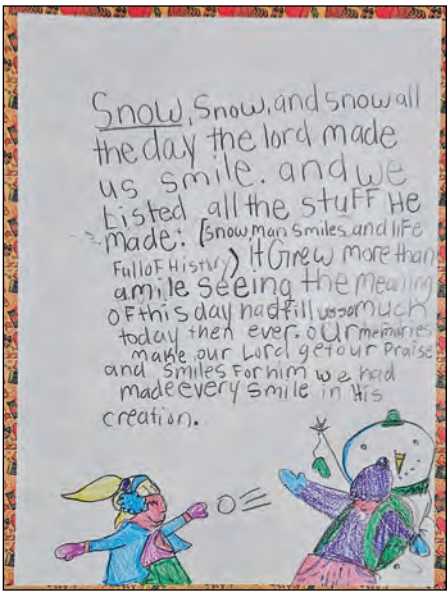 Snow, Snow, and snow all
the day the lord made
us smile. and we
Listed all the stuFF He
made: (snow, man smiles and liFe
FulloF History) it Grew more than
a mile seeing the Meaning
oF this day had fill us so much
today then ever. our memories
make our Lord get our Praise
and Smiles For him we had
made every smile in His
creation.